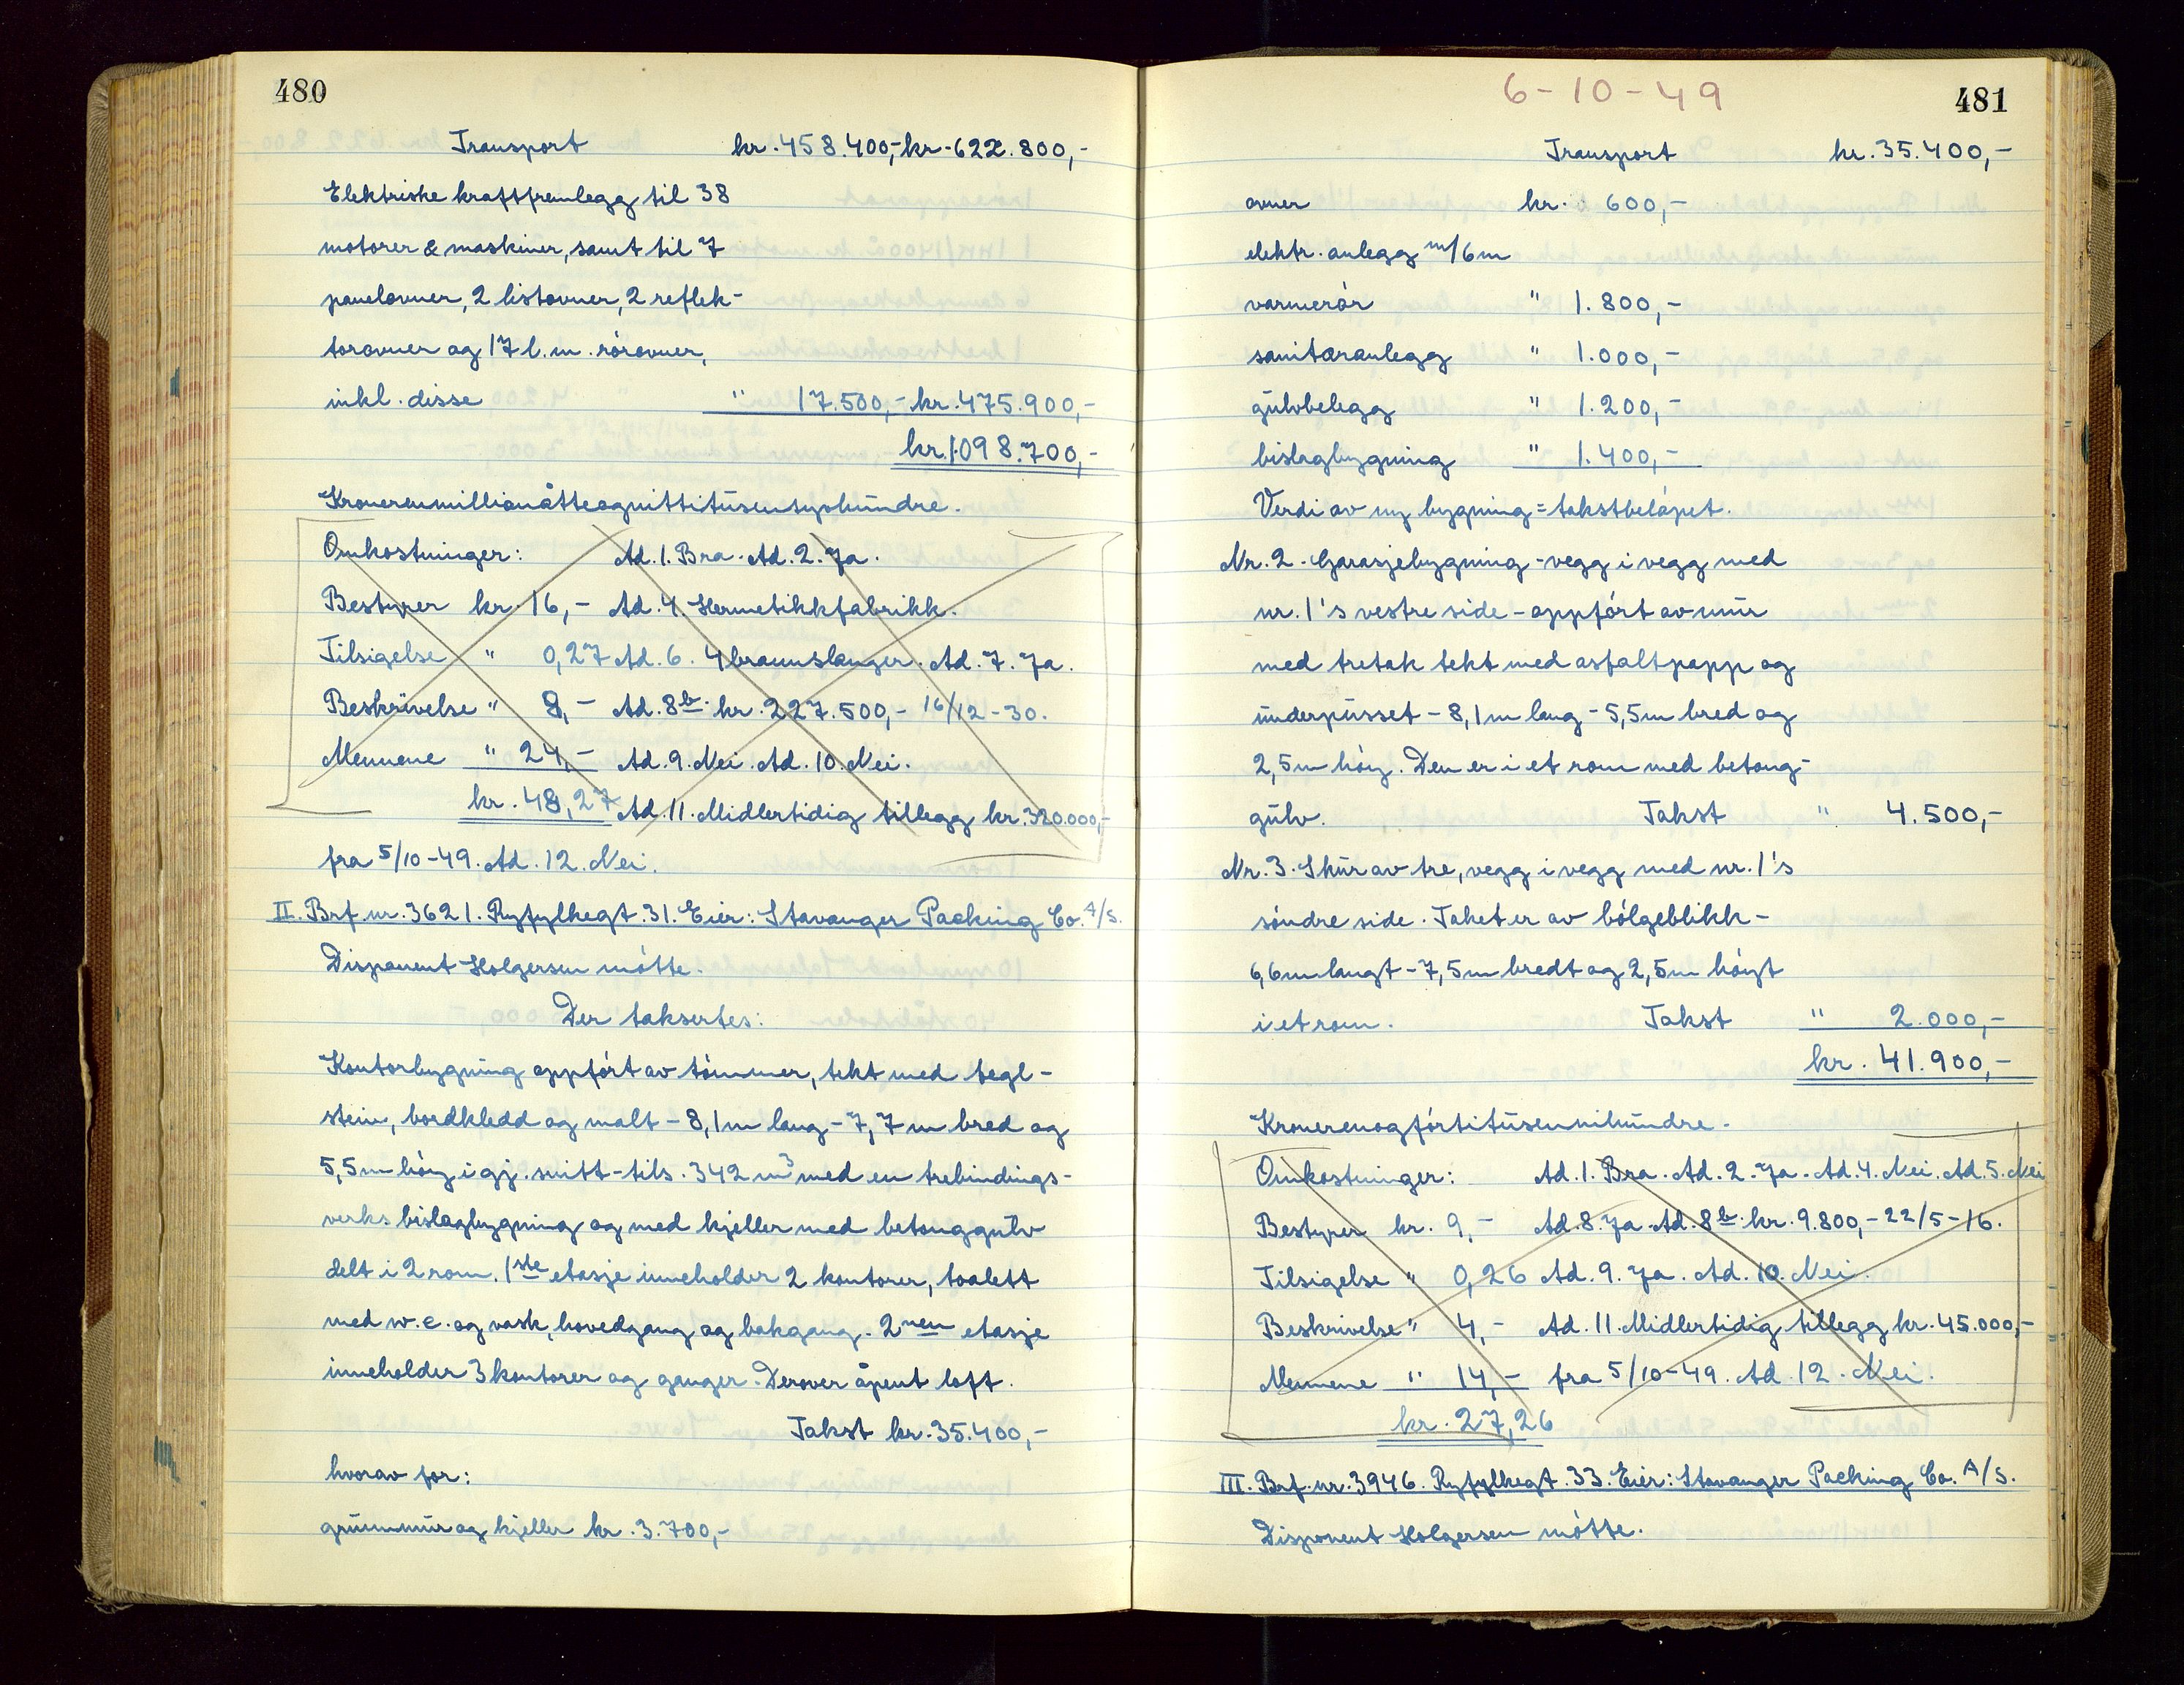 480
Transport kr. 458.400,- kr. 622.800,-
Elektriske kraftfremlegg til 38
motorer & maskiner, samt til 7
panelovner, 2 listovner, 2 reflek-
torovner og 17 l.m. rörovner,
inkl. disse " 17.500,- kr. 475.900,-
kr. 1.098.700,-
Kronerenmillionåtteognittitüsensyvhündre.
Omkostninger: Ad. 1. Bra. Ad. 2. Ja.
Bestyrer kr. 16,- Ad. 4. Hermetikkfabrikk.
Tilsigelse " 0,27 Ad. 6. 4 brannslanger. Ad. 7. Ja.
Beskrivelse " 8,- Ad. 8b. kr. 227.500,- 16/12-30.
Mennene " 24,- Ad. 9. Nei. Ad. 10. Nei.
kr. 48,27 Ad. 11. Midlertidig tillegg kr. 320.000,-
fra 5/10-49. Ad. 12. Nei.
II. Brf nr. 3621. Ryfylkegt. 31. Eier: Stavanger Packing Co. A/S.
Disponent Holgersen mötte.
Der taksertes:
Kontorbygning oppfört av tömmer, tekt med tegl-
stein, bordkledd og malt - 8,1 m lang - 7,7 m bred og
5,5 m höy i gj. snitt - tils. 342 m3 med en trebindings-
verks bislagbygning og med kjeller med betonggülv
delt i 2 rom. 1ste etasje inneholder 2 kontorer, toalett
med w.c. og vask, hovedgang og bakgang. 2nen etasje
inneholder 3 kontorer og ganger. Derover åpent loft.
Takst kr. 35.400,-
hvorav for:
grünnmür og kjeller kr. 3.700,-
6-10-49
481
Transport kr. 35.400,-
ovner kr. 600,-
elektr. anlegg m/6m
varmerör " 1.800,-
sanitæranlegg " 1.000,-
gülvbelegg " 1.200,-
bislagbygning " 1.400,-
Verdi av ny bygning = takstbelöpet.
Nr. 2. Garasjebygning - vegg i vegg med
nr. 1's vestre side - oppfört av mür
med tretak tekt med asfaltpapp og
ünderpüsset - 8,1 m lang - 5,5 m bred og
2,5 m höy. Den er i et rom med betong-
gülv. Takst " 4.500,-
Nr. 3. Skür av tre, vegg i vegg med nr. 1's
söndre side. Taket er av bölgeblikk -
6,6 m langt - 7,5 m bredt og 2,5 m höyt
i et rom. Takst " 2.000,-
kr. 41.900,-
Kronerenogförtitüsennihündre.
Omkostninger: Ad. 1. Bra. Ad. 2. Ja. Ad. 4. Nei. Ad. 5. Nei
Bestyrer kr. 9,- Ad. 8. Ja. Ad. 8b. kr. 9.800,- 22/5-16.
Tilsigelse " 0,26 Ad. 9. Ja. Ad. 10. Nei.
Beskrivelse " 4,- Ad. 11. Midlertidig tillegg kr. 45.000,-
Mennene " 14,- fra 5/10-49. Ad. 12. Nei.
kr. 27,26
III. Brf. nr. 3946. Ryfylkegt. 33. Eier: Stavanger Packing Co. A/S.
Disponent Holgersen mötte.